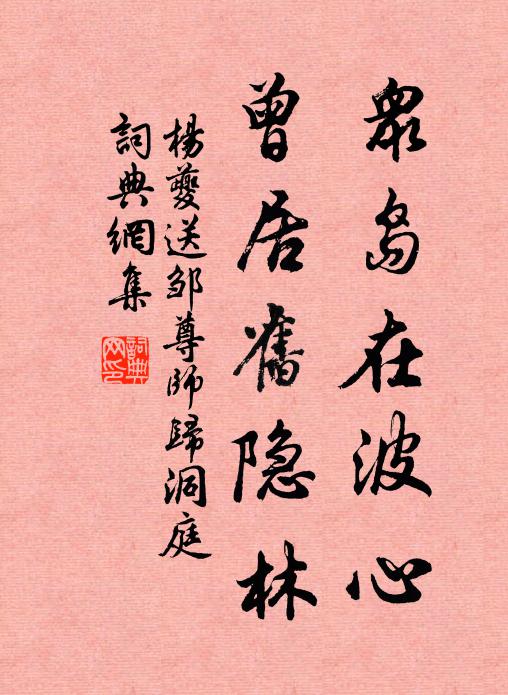 眾島在波心
曾居舊隐林
楊夔送邹尊師歸洞庭
詞典網集
詞典網印